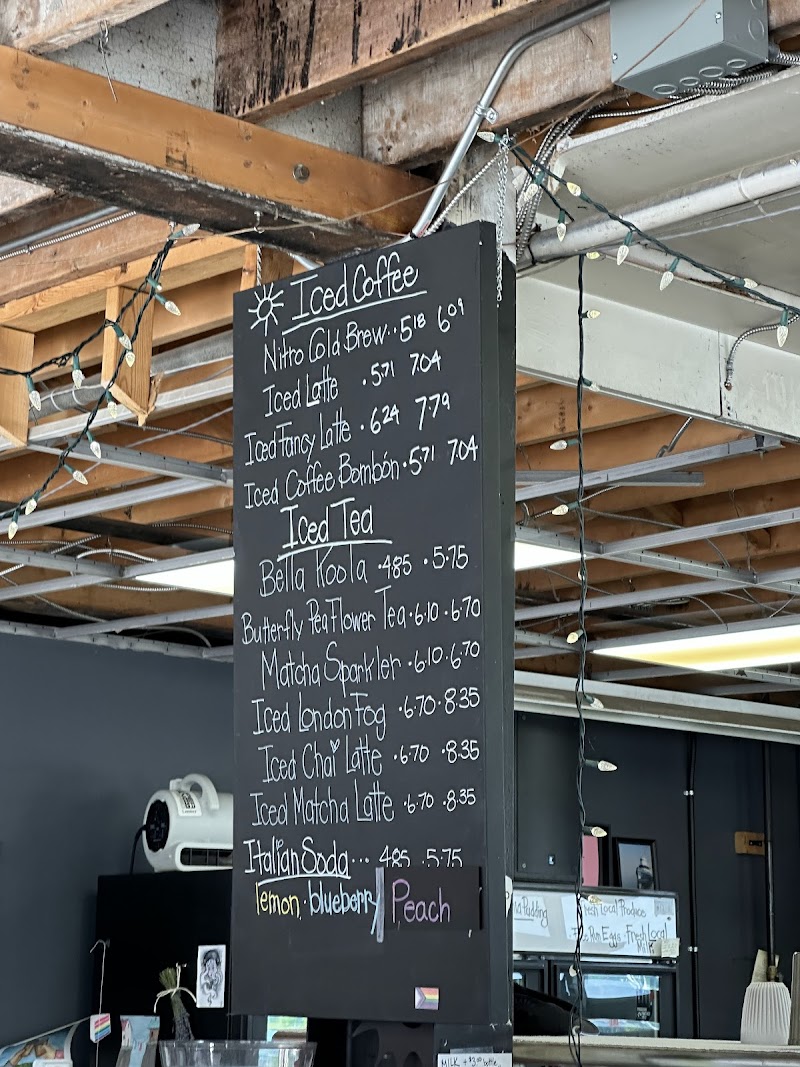 Iced Coffee
Nitro Cold Brew..5.18 6.09
Iced Latte .5.71 7.04
Iced Fancy Latte .6.24 7.79
Iced Coffee Bombón.5.71 7.04
Iced Tea
Bella Koola .4.85 .5.75
Butterfly Pea Flower Tea.6.10.6.70
Matcha Sparkler.6.10.6.70
Iced London Fog .6.70.8.35
Iced Chai Latte .6.70 .8.35
Iced Matcha Latte .6.70 .8.35
Italian Soda... 4.85 .5.75
lemon. blueberry Peach
Pudding
Fresh Local Produce
Run Eggs. Fresh Local
MILK + $3.00 bottle